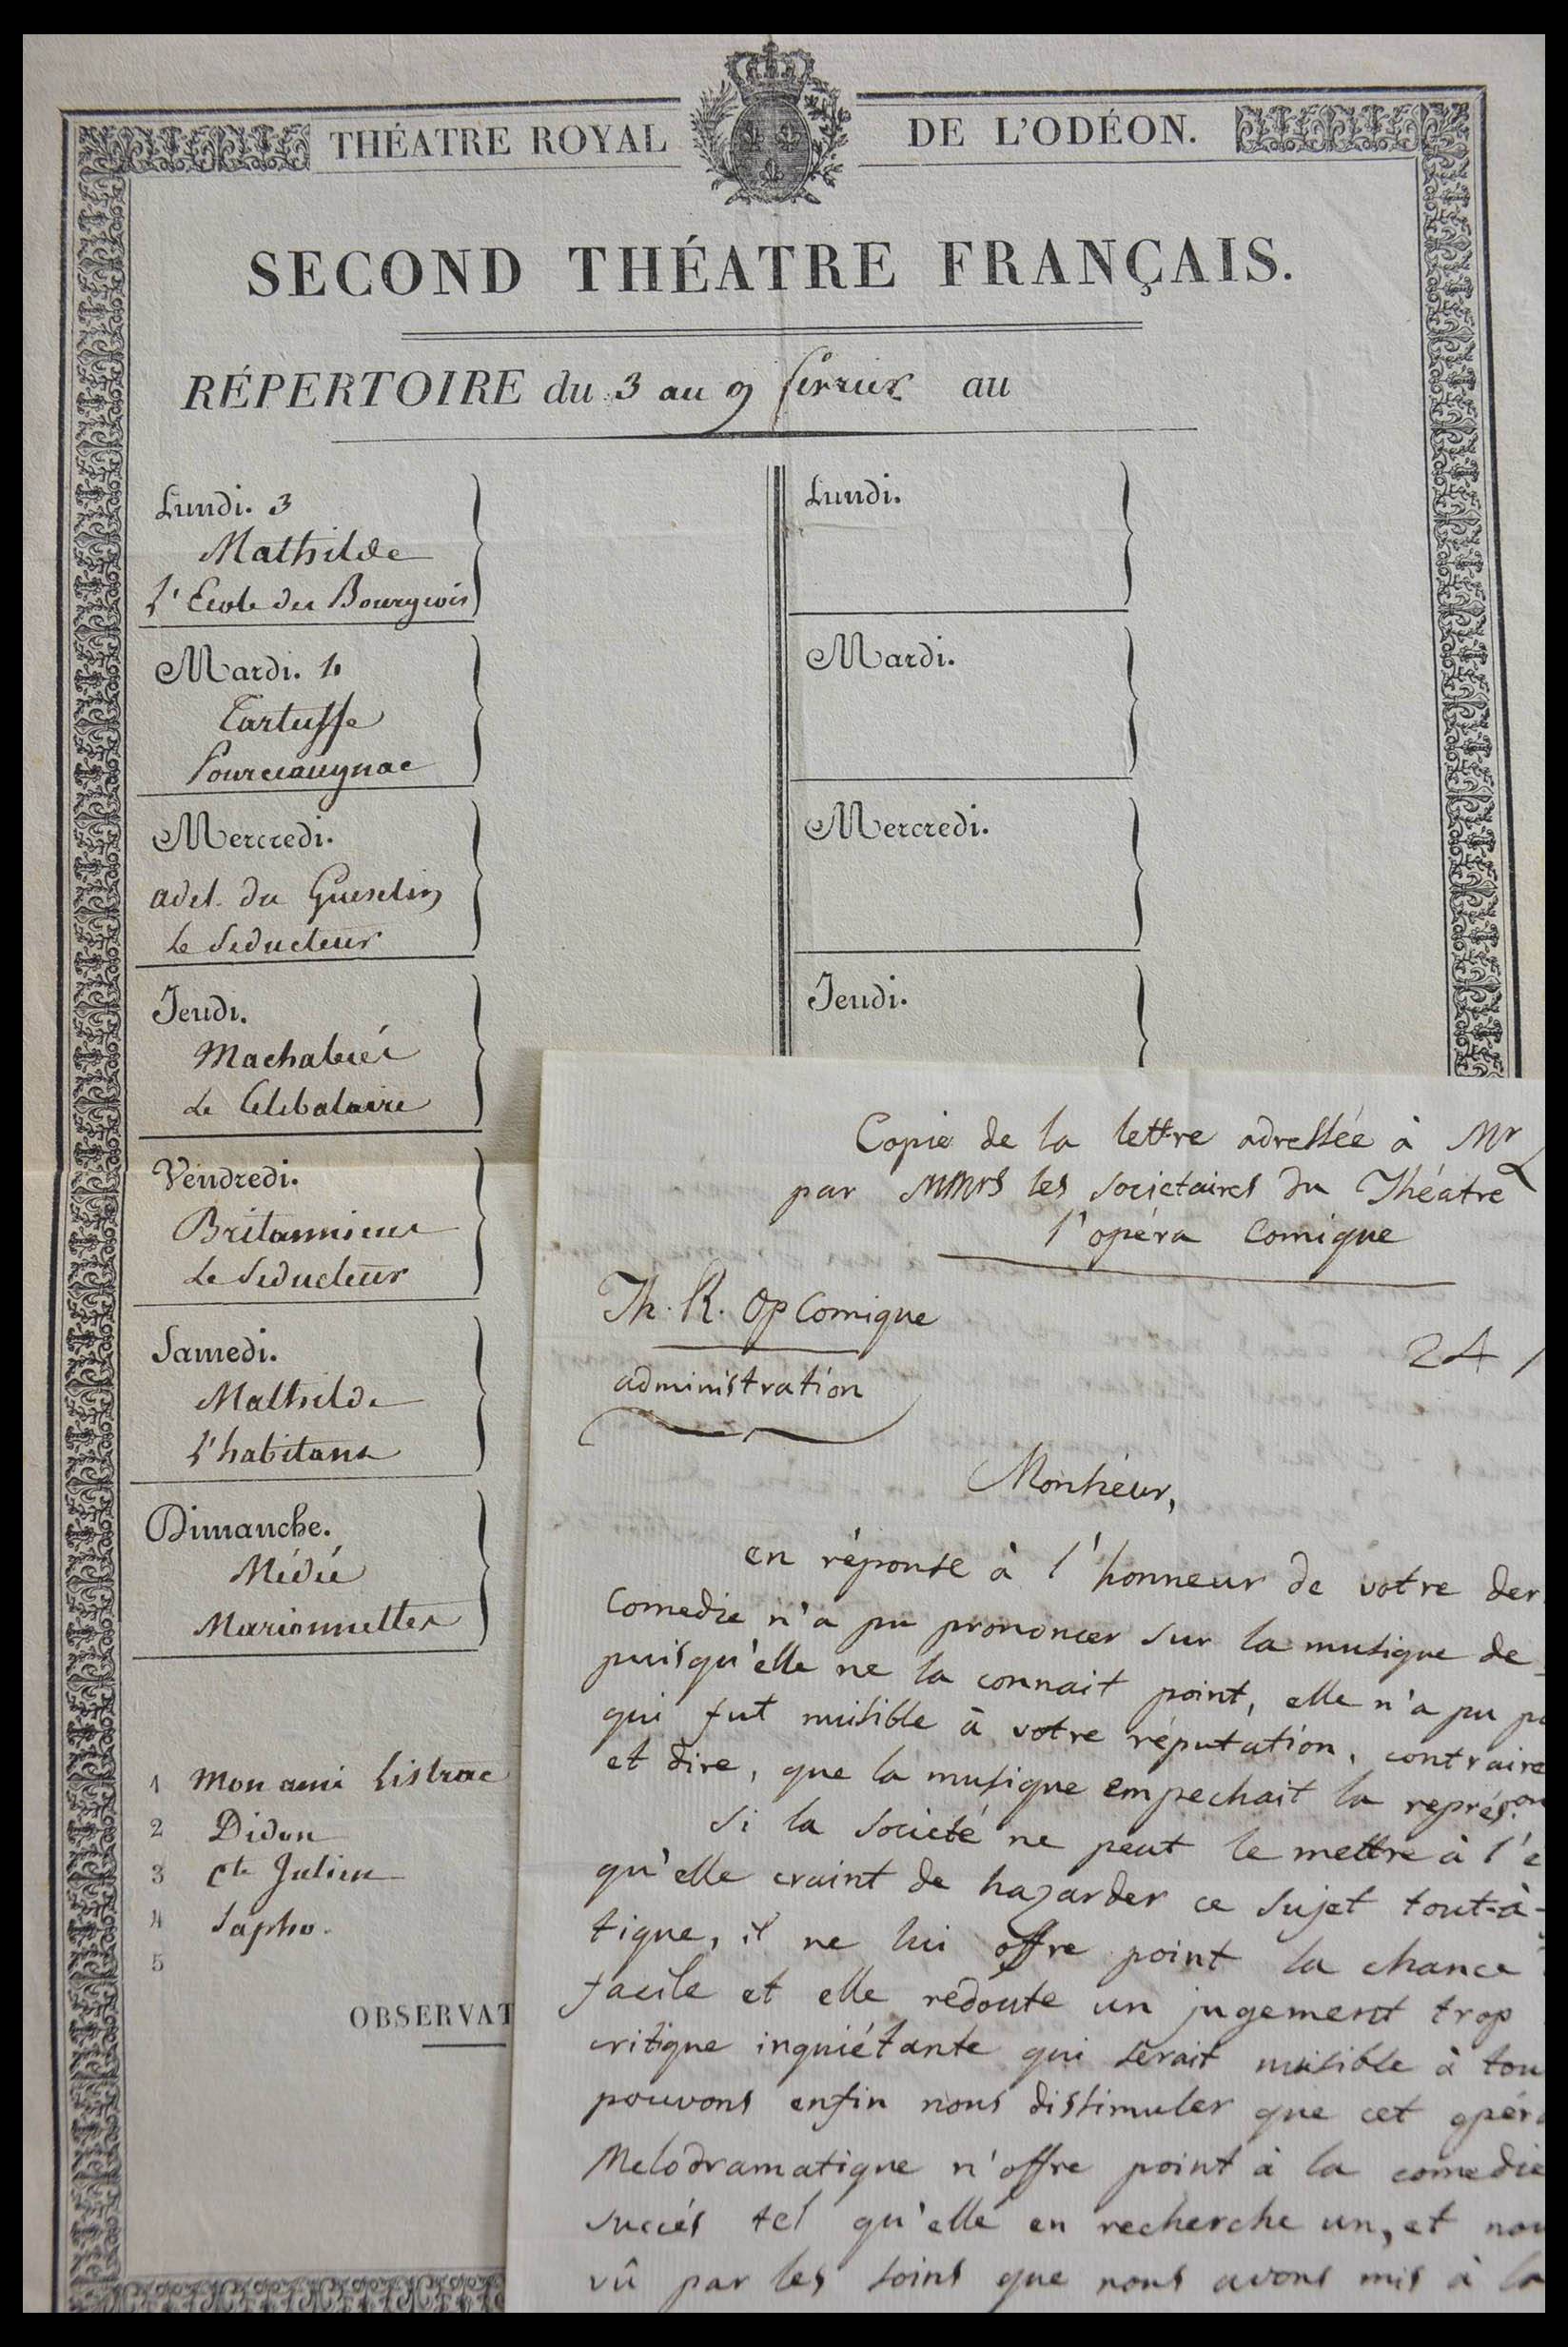 THÉATRE ROYAL DE L'ODÉON.
SECOND THÉATRE FRANÇAIS.
RÉPERTOIRE du 3 au 9 février au
Lundi. 3
Mathilde
L'Ecole des Bourgeois
Mardi. 4
Tartuffe
Pourceaugnac
Mercredi.
adel. du Guesclin
le Seducteur
Jeudi.
Machabées
Le Celibataire
Vendredi.
Britannicus
Le Seducteur
Samedi.
Mathilde
L'habitant
Dimanche.
Médée
Marionnettes
1 Mon ami Listrac
2 Didon
3 cte Julien
4 Sapho.
5
OBSERVAT
Lundi.
Mardi.
Mercredi.
Jeudi.
Copie de la lettre adressée à Mr
par MMrs les societaires du Théatre
l'opéra Comique
Th. R. Op Comique
administration
24
Monsieur,
en réponse à l'honneur de votre der
Comedie n'a pu prononcer sur la musique de
puisqu'elle ne la connait point, elle n'a pu p
qui fut nuisible à votre réputation, contraire
et dire, que la musique empechait la représ.on
Si la Societé ne peut le mettre à l'e
qu'elle craint de hazarder ce sujet tout-à-
tique, il ne lui offre point la chance
facile et elle redoute un jugement trop
critique inquiétante qui serait nuisible à tou
pouvons enfin nous dissimuler que cet opér
Melodramatique n'offre point à la comedie
succés tel qu'elle en recherche un, et nou
vû par les soins que nous avons mis à la